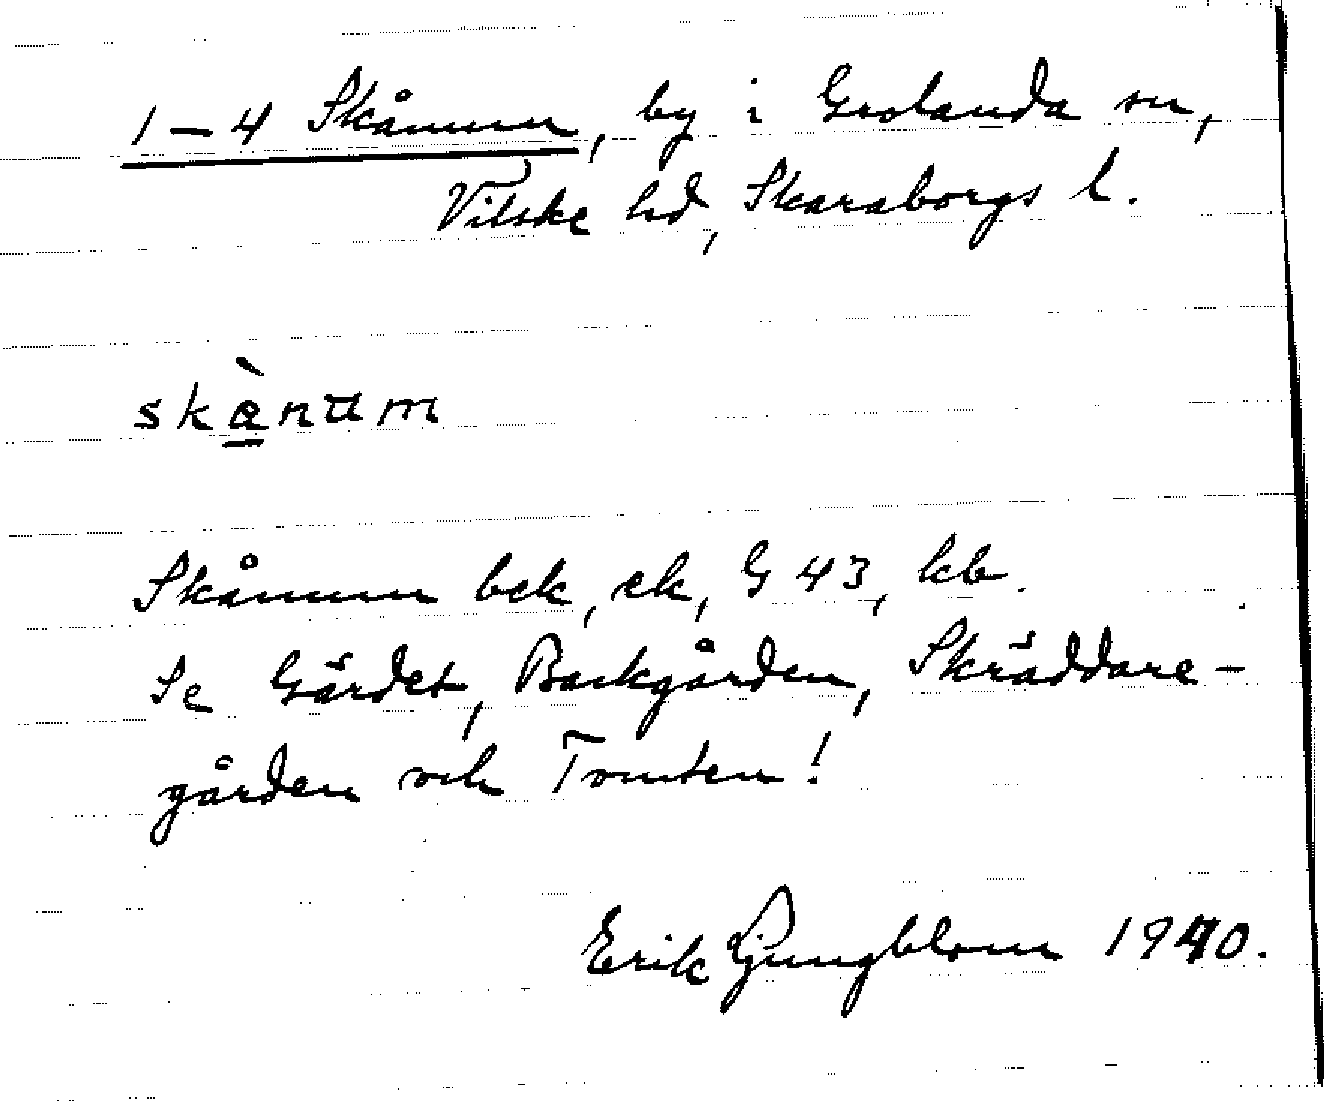 1-4 Skånum, by i Grolanda sn,
Vilske hd, Skaraborgs l.
skànum
Skånum bek, ek, G 43, kb.
Se Gärdet, Backgården, Skräddare-
gården och Tomten!
Erik Ljungblom 1940.